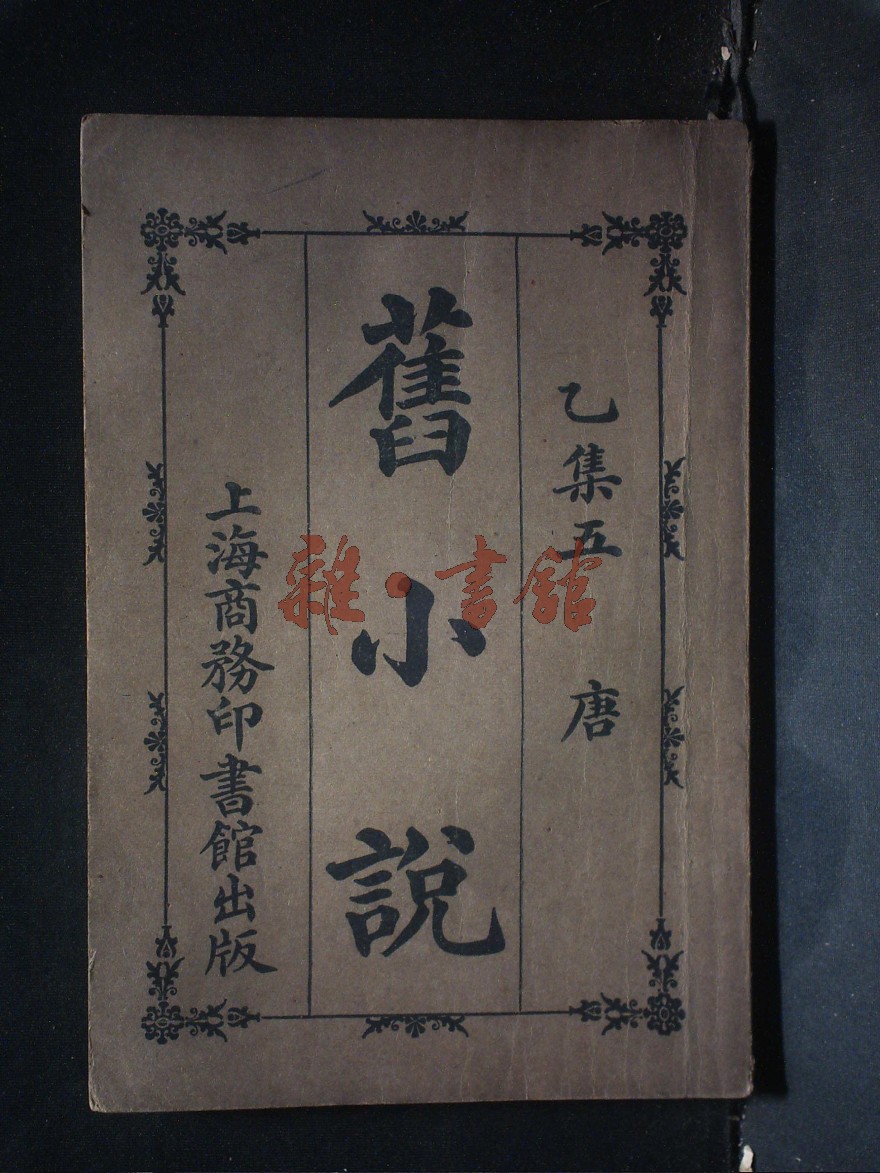 乙集五 唐
舊小說
上海商務印書館出版
雜·書館